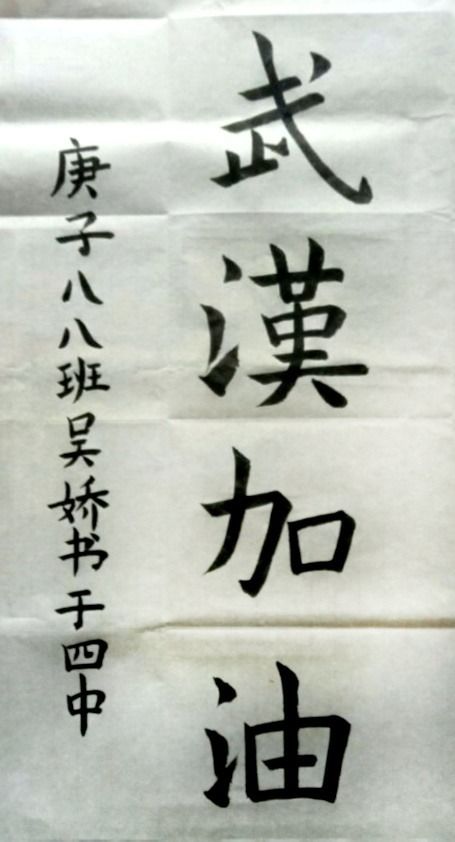 武漢加油
庚子八八班吴娇书于四中